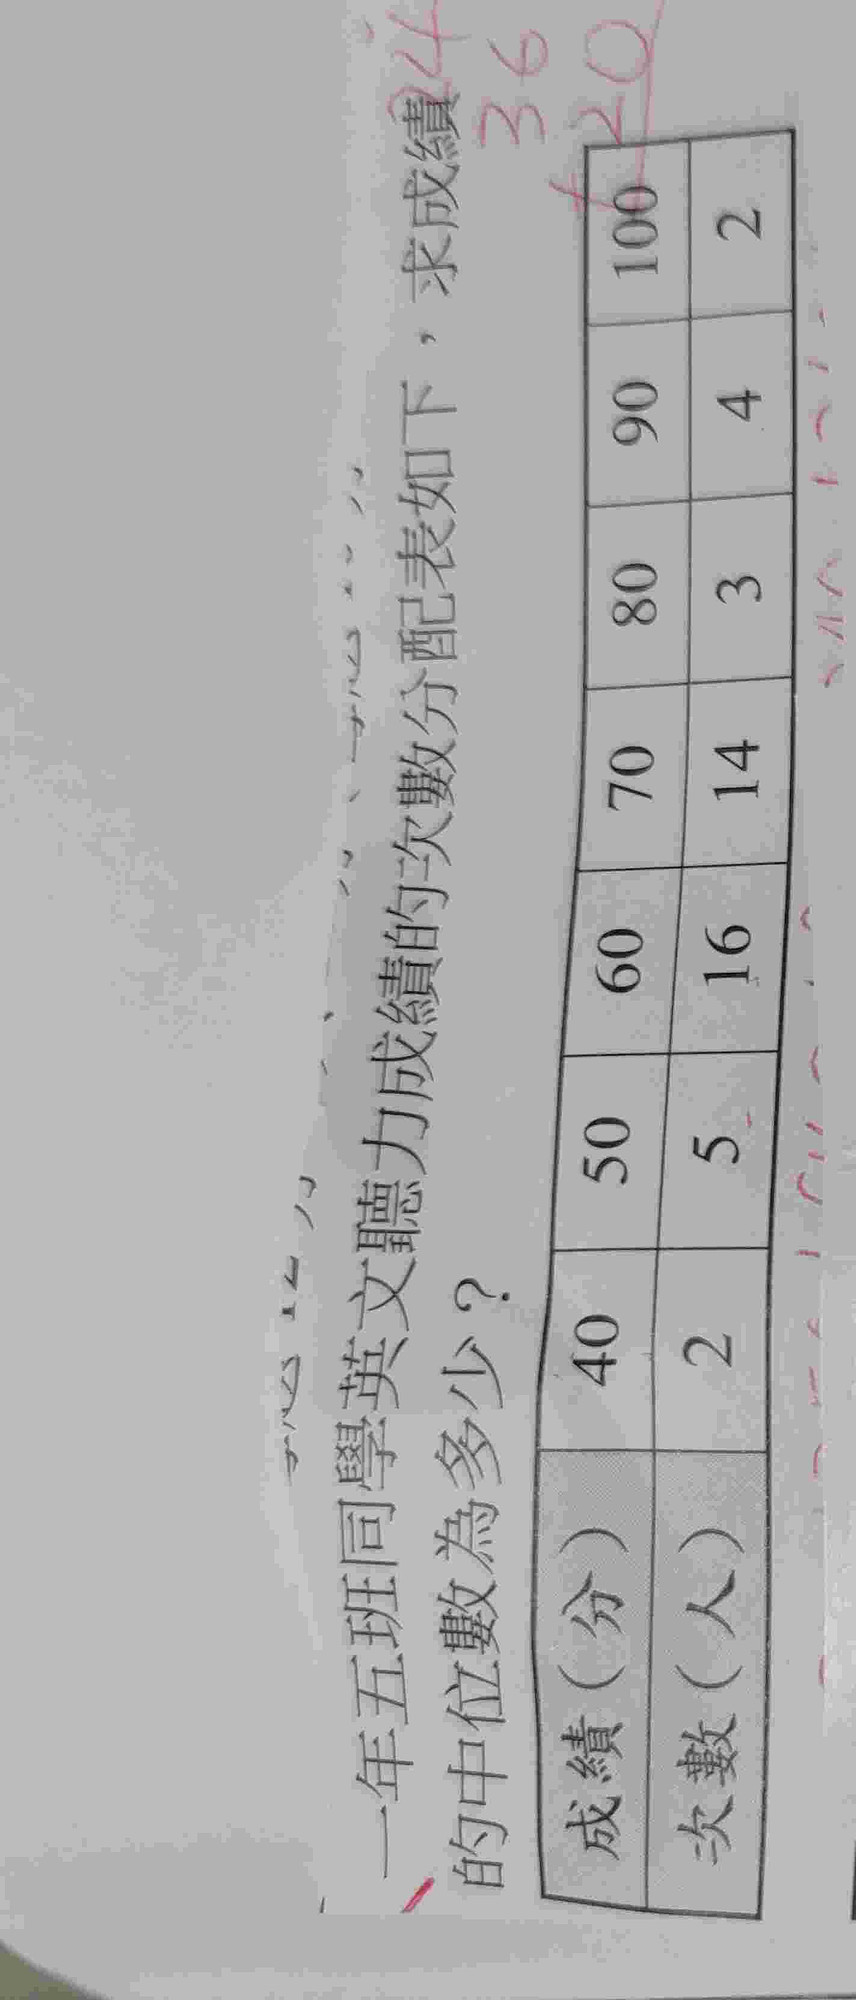 一年五班同學英文聽力成績的次數分配表如下,求成績
的中位數為多少?
成績(分) 40 50 60 70 80 90 100
次數(人) 2 5 16 14 3 4 2
24
36
+20